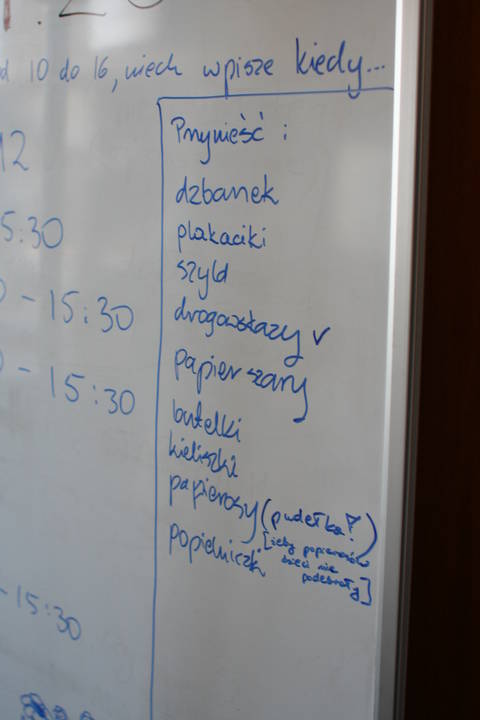 10 do 16, niech wpisze kiedy...
12
5:30
- 15:30
- 15:30
- 15:30
Przynieść :
dzbanek
plakaciki
szyld
drogowskazy v
papier szary
butelki
kieliszki
papierosy (pudełka?)
[żeby papierosów
dzieci nie
podebrały]
popielniczki